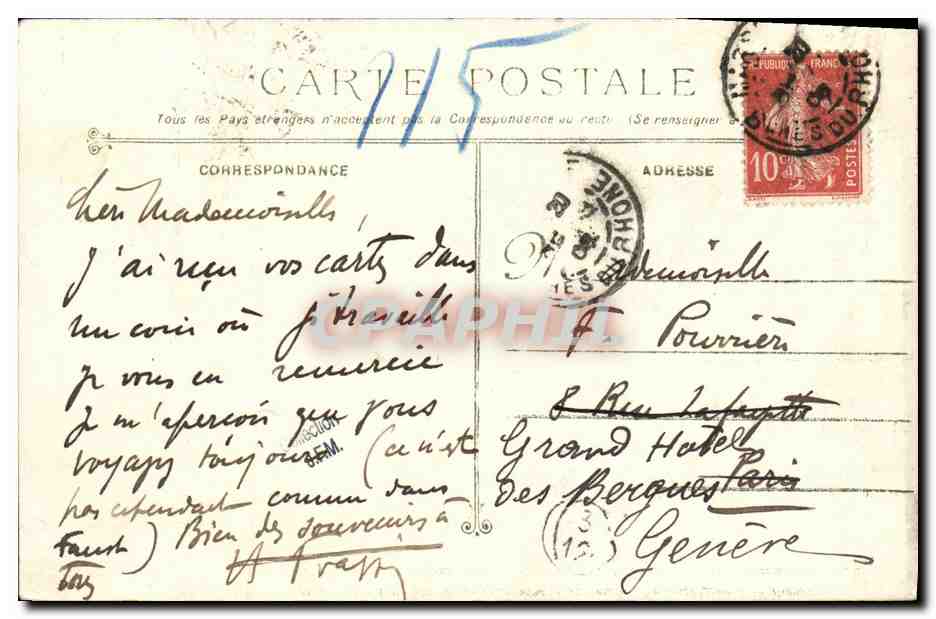 115
CARTE POSTALE
Tous les Pays étrangers n'acceptent pas la Correspondance au recto (Se renseigner à
CORRESPONDANCE
ADRESSE
REPUBLIQUE FRANÇAISE
10c POSTES
Chère Mademoiselle,
J'ai reçu vos cartes dans
un coin où je travaille
Je vous en remercie
Je m'aperçois que vous
voyagez toujours (ce n'est
pas cependant comme dans
Faust) Bien des souvenirs à
tous
Mademoiselle
A. Pourrière
8 Rue Lafayette
Paris
Grand Hotel
des Bergues
Genève
RHONE
BCHES DU RHONE
Collection
J.F.M.
CPAPHIL